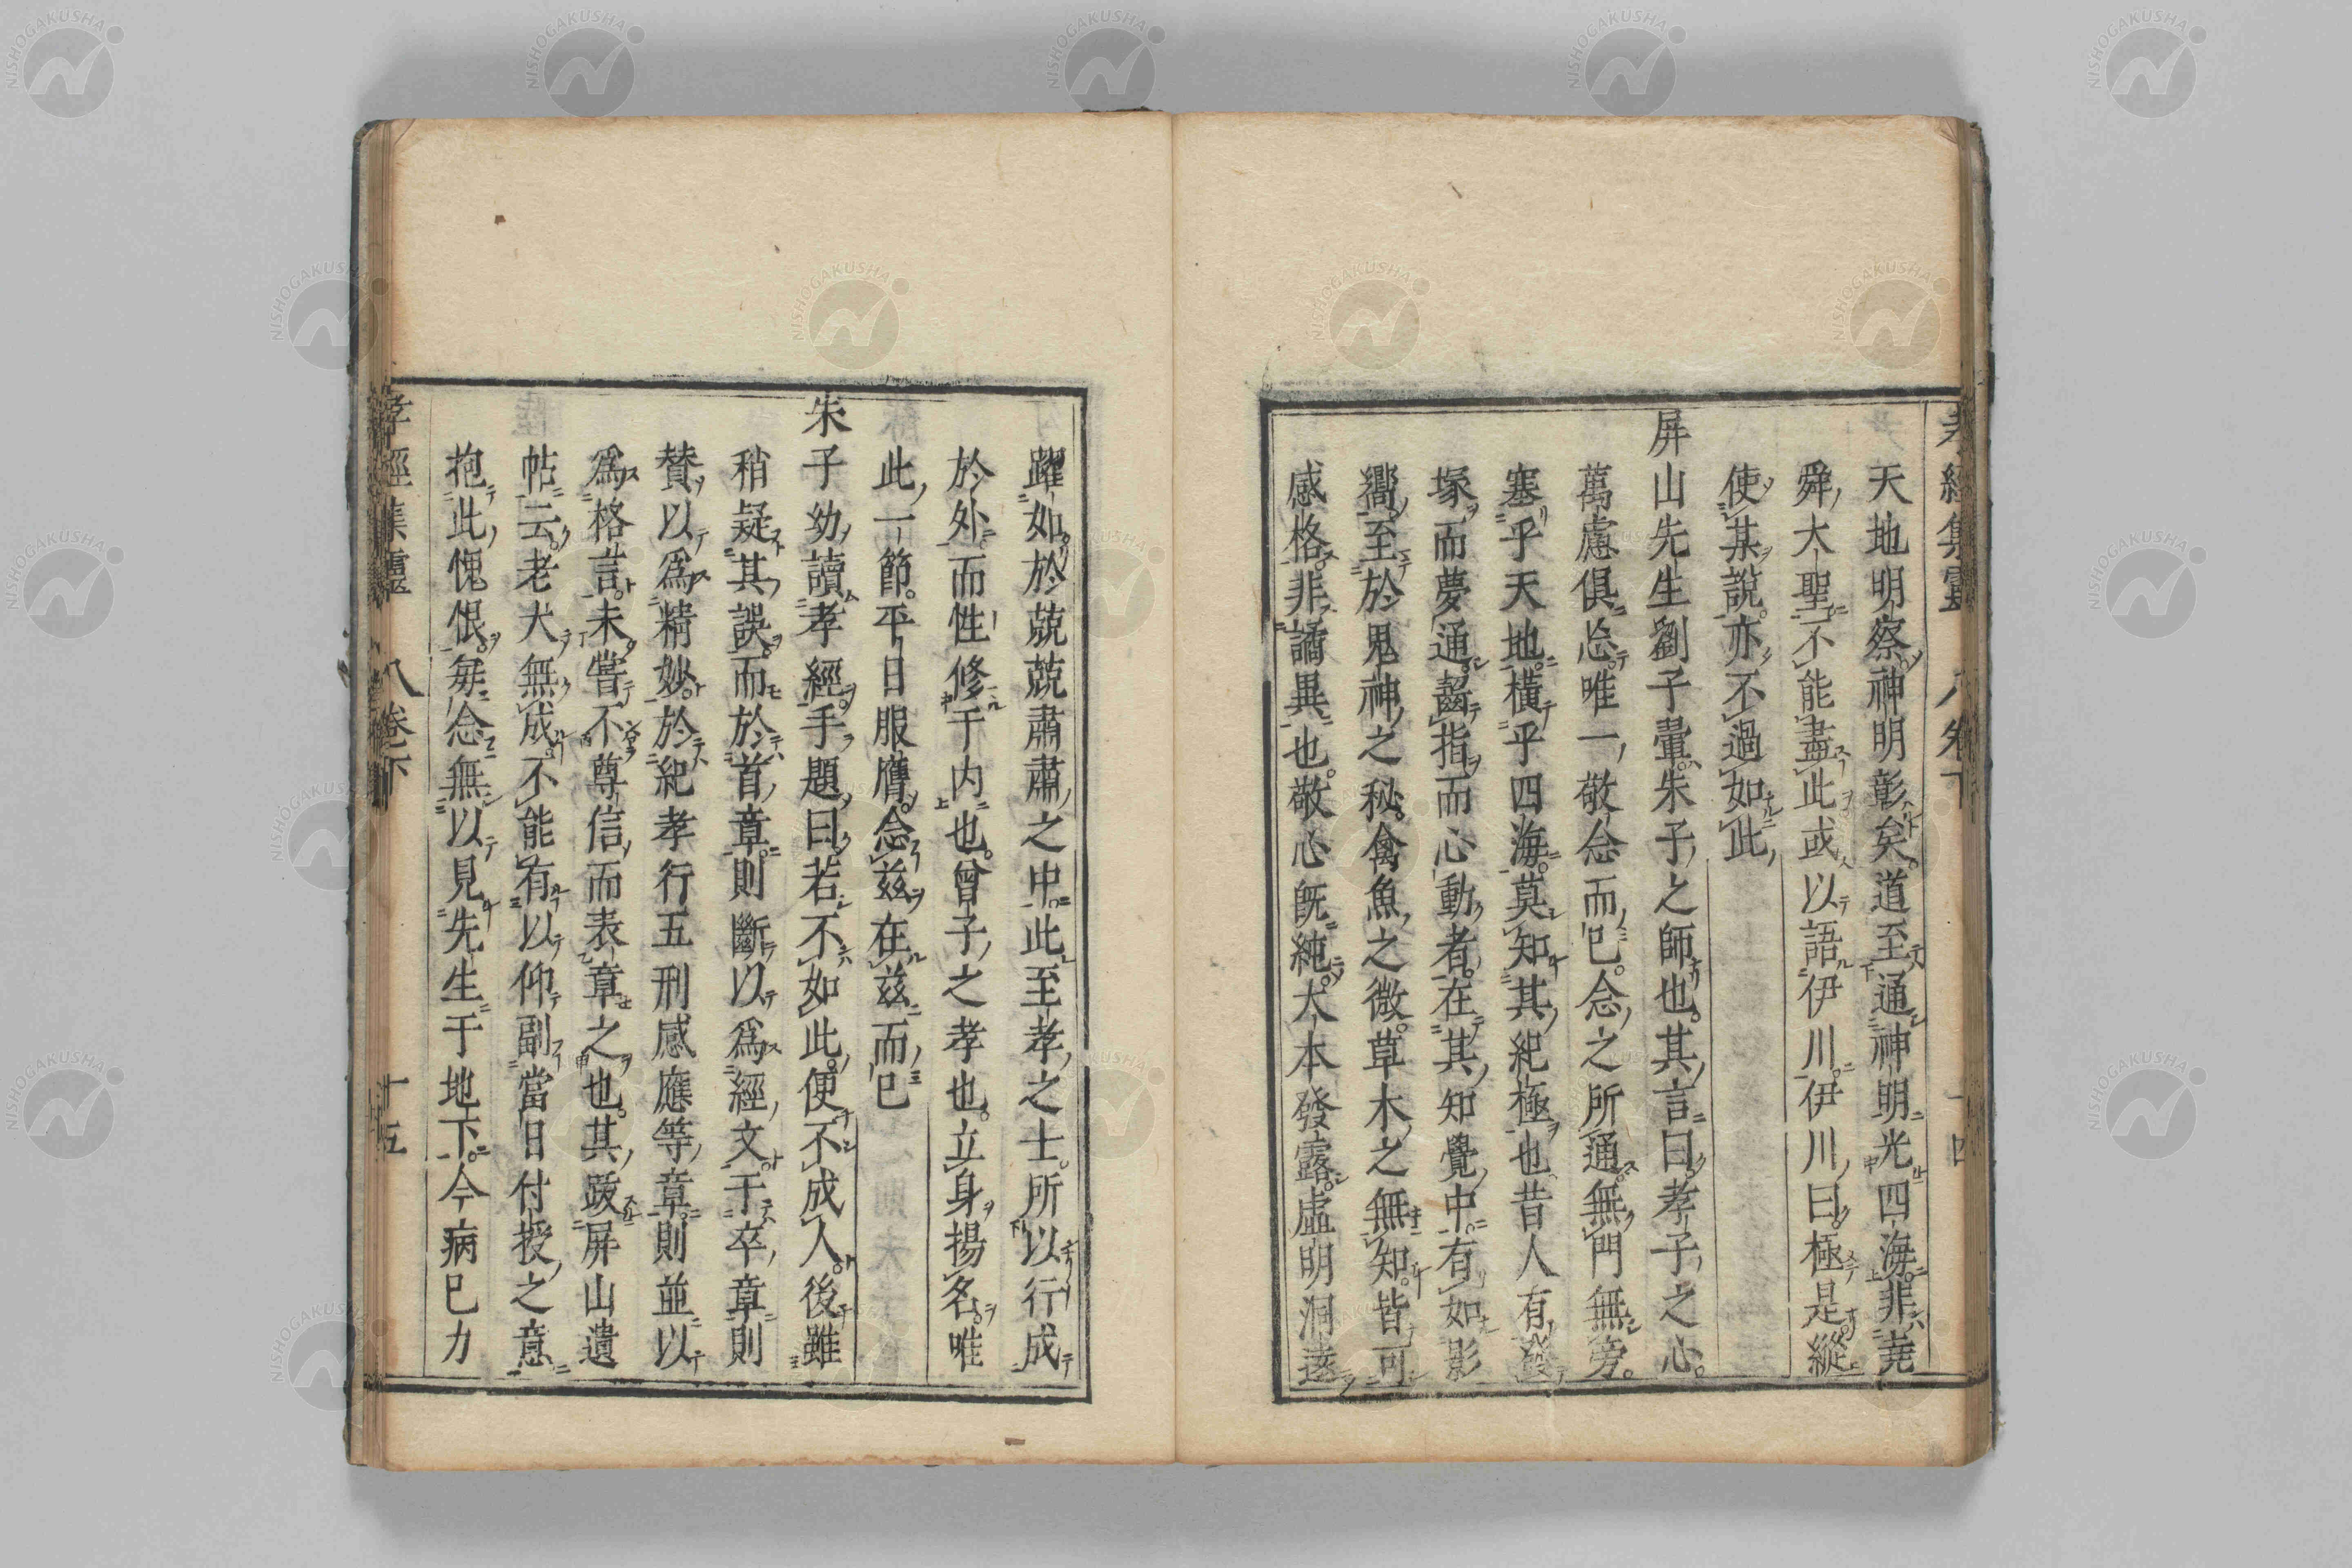 天地明察神明彰矣道至通神明光四海非堯
舜大聖不能盡此或以語伊川伊川曰極是縱
使某說亦不過如此
屏山先生劉子翬朱子之師也其言曰孝子之心
萬慮俱忘唯一敬念而已念之所通無門無旁
塞乎天地橫乎四海莫知其紀極也昔人有發
塚而夢通齧指而心動者在其知覺中有如影
嚮至於鬼神之秘禽魚之微草木之無知皆可
感格非譎異也敬心既純大本發露虛明洞達
躍如於兢兢肅肅之中此至孝之士所以行成
於外而性修于内也曾子之孝也立身揚名唯
此一節平日服膺念茲在茲而已
朱子幼讀孝經手題曰若不如此便不成人後雖
稍疑其誤而於首章則斷以爲經文于卒章則
賛以爲精妙於紀孝行五刑感應等章則並以
爲格言未嘗不尊信而表章之也其跋屏山遺
帖云老犬無成不能有以仰副當日付授之意
抱此愧恨毎念無以見先生于地下今病已力
孝經集靈 卷下 十五
NISHOGAKUSHA